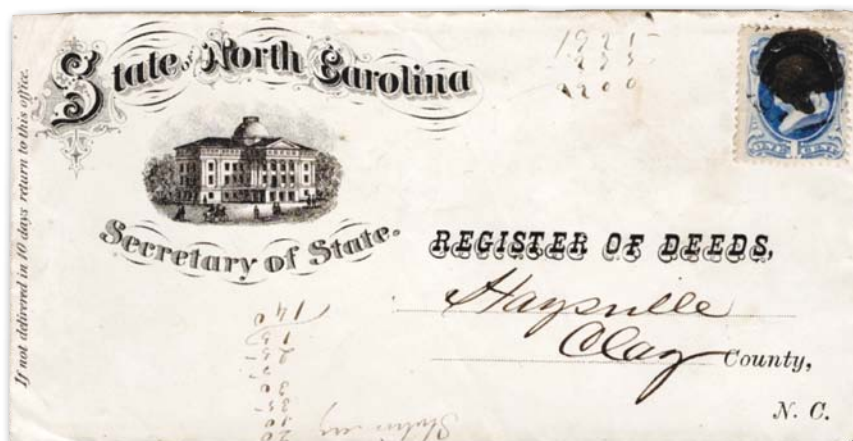 If not delivered in 10 days return to this office.
State of North Carolina
Secretary of State.
1925
275
2200
ONE CENT
REGISTER OF DEEDS,
Haysville
Clay County,
N. C.
20
10
35
30
25
15
140